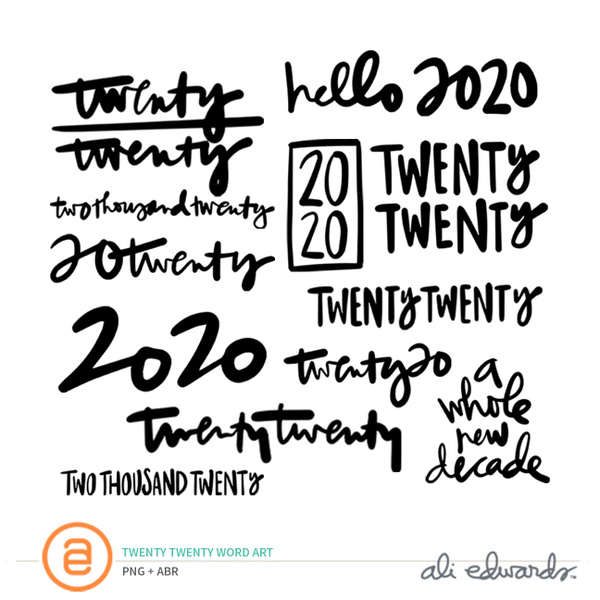 twenty
twenty
twothousandtwenty
20twenty
2020
twentytwenty
TWO THOUSAND TWENTY
hello 2020
20
20
TWENTY
TWENTY
TWENTYTWENTY
twenty20
a
whole
new
decade
ae
TWENTY TWENTY WORD ART
PNG + ABR
ali edwards™